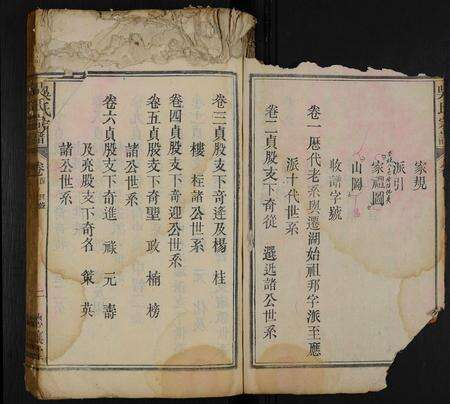 吳氏宗譜
家規
派引
家祖圖
山圖
收譜字號
卷一歷代老系與遷湖始祖邦字派至應
派十代世系
卷二貞股支下奇從 選迅諸公世系
卷三貞股支下奇逵及楊 柱
樓 桎諸公世系
卷四貞股支下奇迎公世系
卷五貞股支下奇聖 政 楠 榜
諸公世系
卷六貞股支下奇進 祿 元 壽
及亮股支下奇名 策 英
諸公世系
吳氏宗譜
卷首